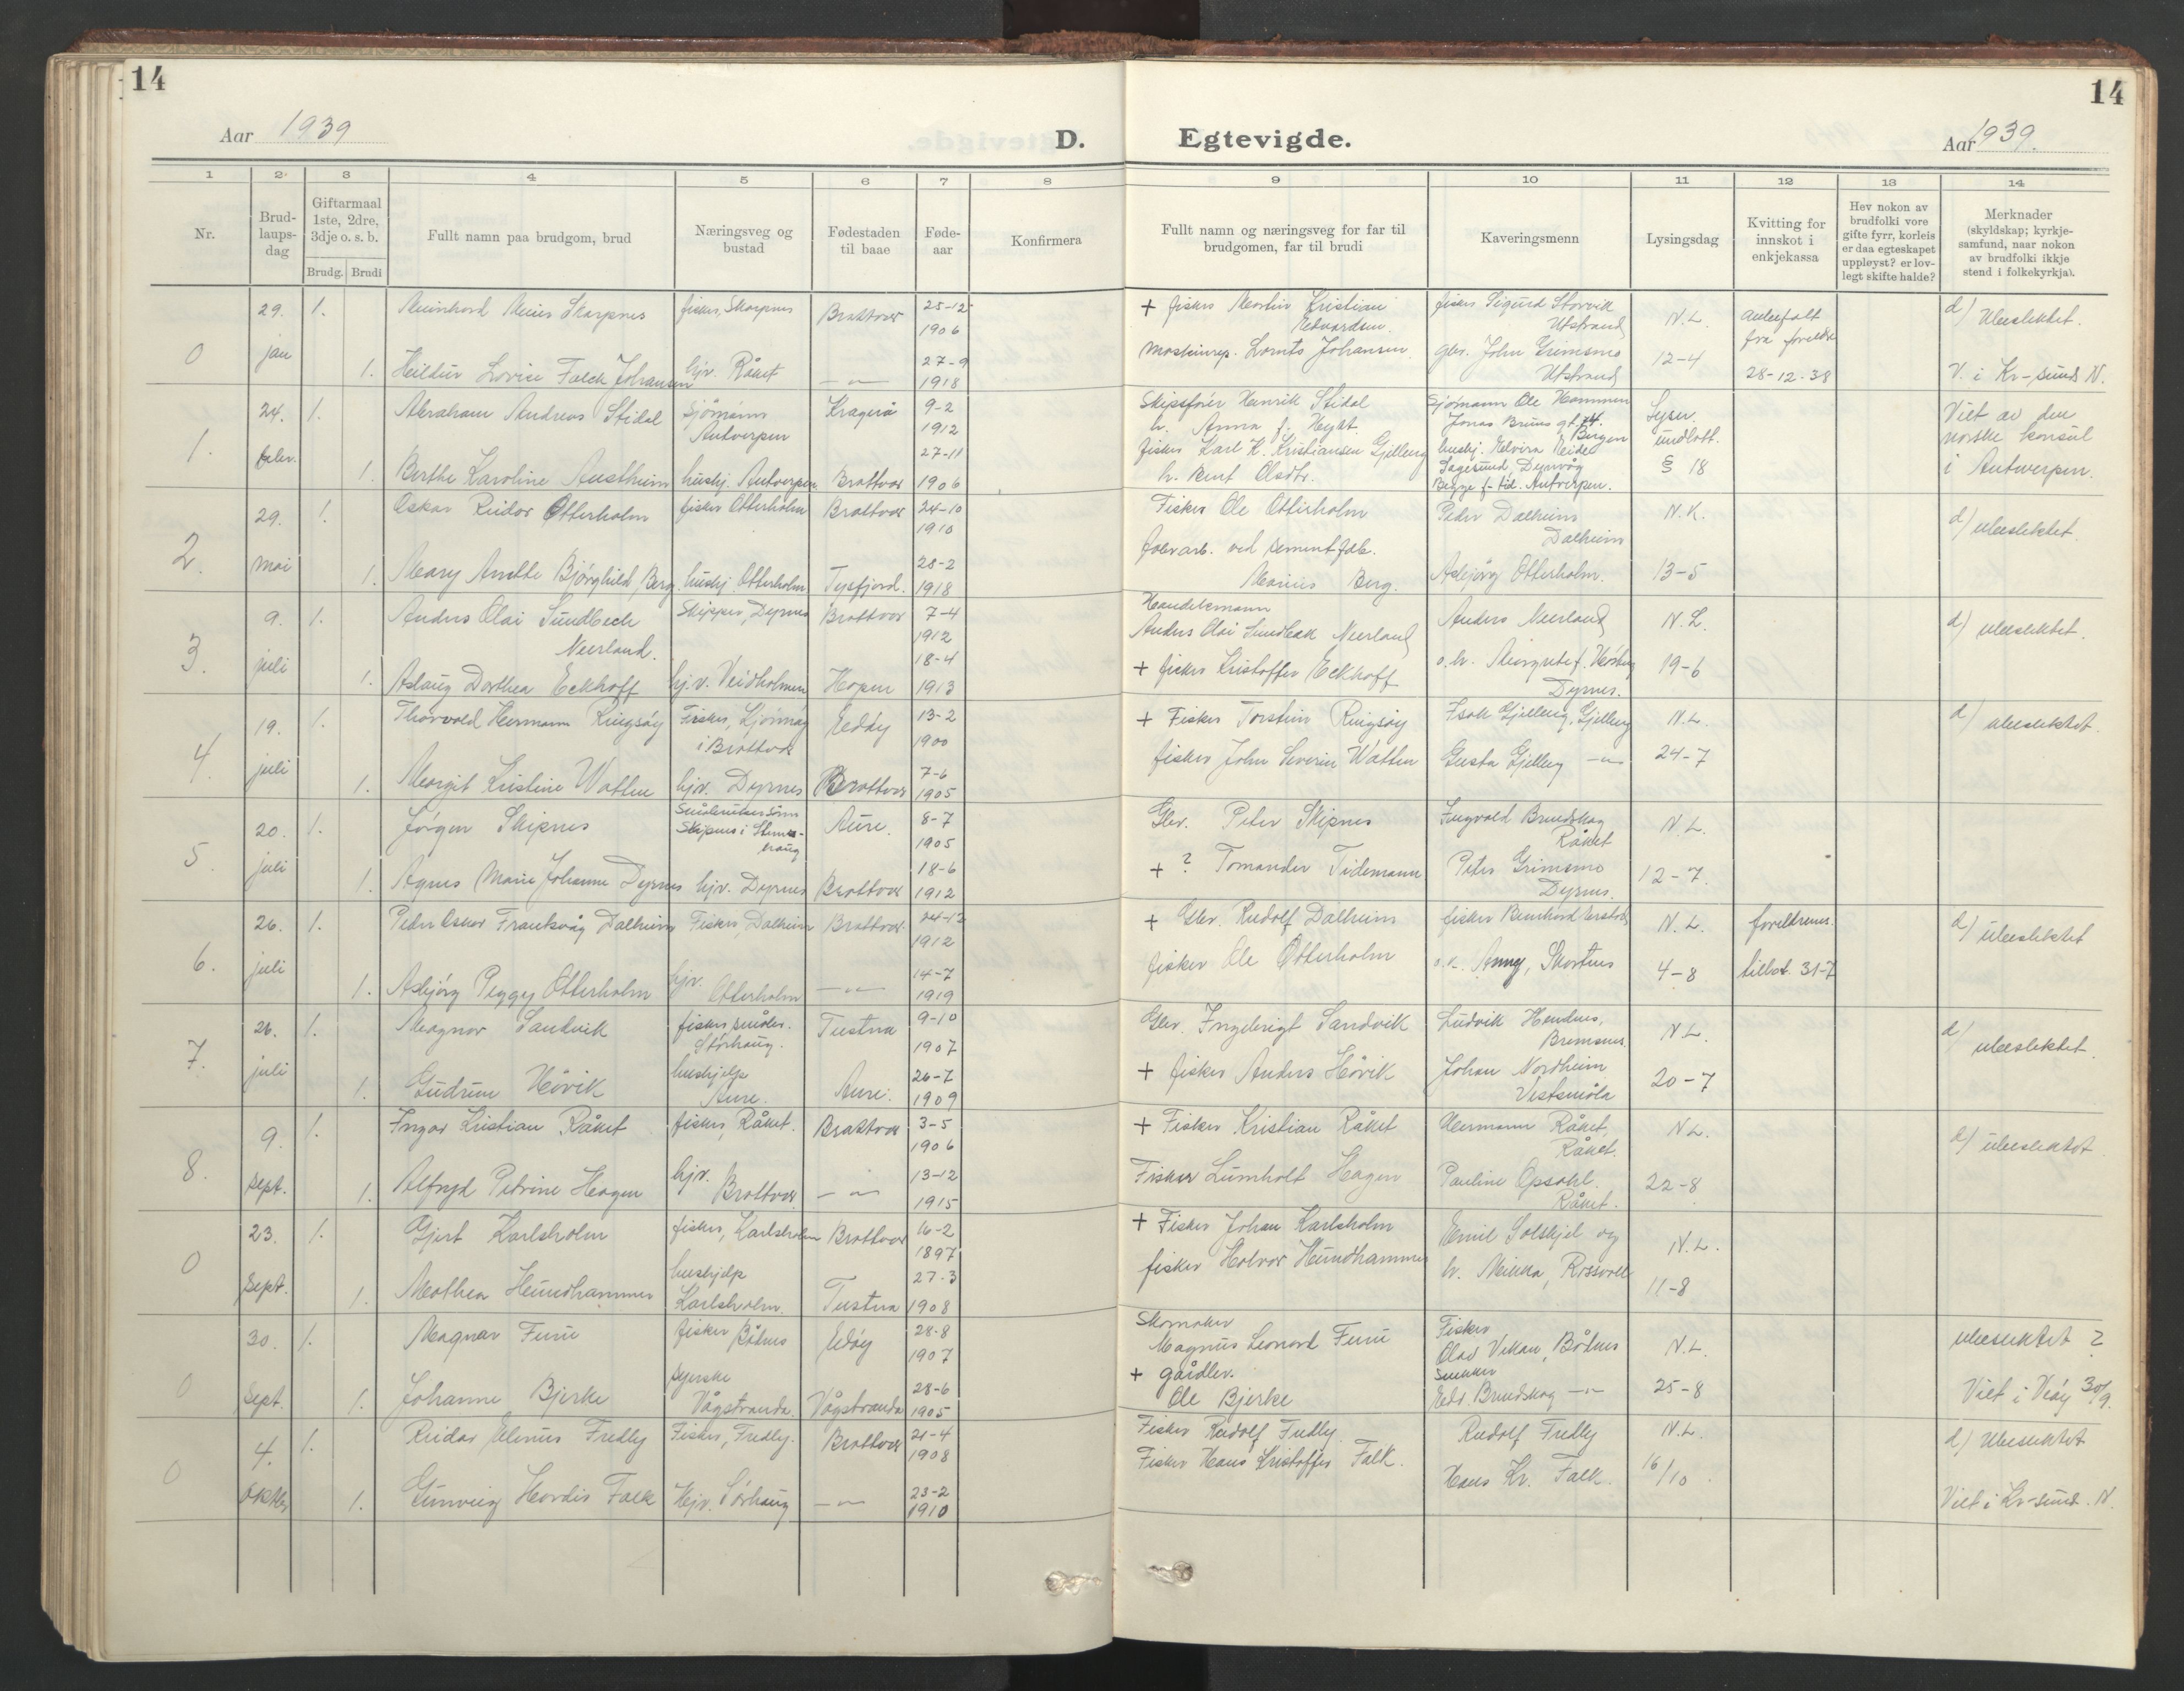 14
Aar 1939
D.
1 2 3 4 5 6 7 8
Nr.
Brud-
laups-
dag
Giftarmaal
1ste, 2dre,
3dje o. s. b.
Brudg. Brudi
Fullt namn paa brudgom, brud
Næringsveg og
bustad
Fødestaden
til baae
Føde-
aar
Konfirmera
0 29. jan 1. Skarpnes fisker, Skarpnes Brattvær 25-12 1906
1. Lovise Falck Johansen hjv. Råket —"— 27-9 1918
1. 24. febr. 1. Abraham Andreas Stidal Sjömann Antverpen Kragerø 9-2 1912
1. Berthe Karoline Austheim hushj. Antverpen Brattvær 27-11 1906
2. 29. mai 1. Oskar Reidar Otterholm fisker Otterholm Brattvær 24-10 1910
1. Mary Anethe Bjørghild Berg hushj. Otterholm Tysfjord. 28-2 1918
3. 9. juli 1. Anders Olai Sundbech
Neerland.
Skipper, Dyrnes Brattvær 7-4 1912
1. Aslaug Dorthea Eckhoff hj.v. Veidholmen Hopen 18-4 1913
4. 19. juli 1. Thorvald Hermann Ringsøy Fisker,
i Brattvær
Edöy 13-2 1900
1. Margit Kristine Watten hjv. Dyrnes Brattvær 7-6 1905
5. 20. juli 1. Jørgen Skipnes
Skipnes i
Aure. 8-7 1905
1. Agnes Marie Johanne Dyrnes hjv. Dyrnes Brattvær 18-6 1912
6. 26. juli 1. Peder Oskar Frantsvåg Dalheim Fisker, Dalheim Brattvær. 24-12 1912
1. Asbjörg Peggy Otterholm hjv. Otterholm —"— 14-7 1919
7. 26. juli 1. Magnar Sandvik fisker,
Störhaug.
Tustna 9-10 1907
1. Gudrun Hövik hushjelp
Aure.
Aure. 26-7 1909
8. 9. sept. 1. Ingar Kristian Råket fisker, Råket. Brattvær 3-5 1906
1. Alfryd Petrine Hagen hjv. Brattvær —"— 13-12 1915
0 23. sept. 1. Gjert Karlsholm fisker, Karlsholm Brattvær 16-2 1897
1. Mathea Hundhammer hushjelp
Karlsholm.
Tustna 27-3 1908
0 30. sept. 1. Magnar Furu fisker Båtnes Edöy 28-8 1907
1. Johanne Bjerke syerske
Vågstranda.
Vågstranda 28-6 1905
0 4. oktbr 1. Reidar Elenus Fredly Fisker, Fredly. Brattvær 21-4 1908
1. Gunveig Hordis Falk Hjv. Sörhaug —"— 23-2 1910
14
Egtevigde.
Aar 1939.
9 10 11 12 13 14
Fullt namn og næringsveg for far til
brudgomen, far til brudi
Kaveringsmenn
Lysingsdag
Kvitting for
innskot i
enkjekassa
Hev nokon av
brudfolki vore
gifte fyrr, korleis
er daa egteskapet
uppløyst? er lov-
legt skifte halde?
Merknader
(skyldskap; kyrkje-
samfund, naar nokon
av brudfolki ikkje
stend i folkekyrkja).
+ fisker Martin Kristian
Edvardsen.
fisker Sigurd Storvik
Utstrand
N.L. d) Ubeslektet.
Maskinrep. Lornts Johansen. gbr. John Grimsmo
Utstrand
12-4 28-12-38 V. i Kr-sund N.
Skipsfører Henrik Stidal
h. Anna f. Heydt
Sjömann Ole Hammen
Jonas gt. 74.
Bergen
Viet av den
norske konsul
i Antwerpen.
fisker Karl K. Kristiansen Gjelberg
h. Berit Olsdtr.
hushj. Elvira
Dyrvåg
Begge f. tid. Antverpen.
§ 18
Fisker Ole Otterholm Peder Dalheim
Dalheim
N.K. d) ubeslektet.
ved sementfab.
Marius Berg. Asbjörg Otterholm. 13-5
Handelsmann
Anders Olai Sundbak Neerland Anders Neerland N.L. d) ubeslektet.
+ fisker Kristoffer Eckhoff o.h. Margrete f.
Dyrnes.
19-6
+ Fisker Torstein Ringsøy Isak Gjelberg, Gjelberg N.L. d) ubeslektet.
fisker John Severin Watten Gusta Gjelberg —"— 24-7
Gbr. Peter Skipnes Ingvald Brendskag
Råket
N.L.
+ ? Tomander Tidemann Peter Grimsmo
Dyrnes.
12-7.
+ Gbr. Rudolf Dalheim fisker Bernhard N.L. foreldrenes. d) ubeslektet
fisker Ole Otterholm 4-8 tillat. 31-7
Gbr. Ingebrigt Sandvik Ludvik Hendnes,
Bremsnes.
N.L. d) ubeslektet.
+ fisker Anders Hövik Johan Nordheim
Vestsmöla
20-7
+ Fisker Kristian Råket Hermann Råket,
Råket.
N.L. d) ubeslektet.
Fisker Lumholt Hagen Pauline Opsahl.
Råket.
22-8
+ Fisker Johan Karlsholm Emil Solskjel og N.L.
fisker Halvor Hundhammer h. Minka, Rosvoll 11-8
Skomaker
Magnus Leonard Furu
Fisker
Olav Vikan, Båtnes
N.L. ubeslektet ?
+ gårdbr.
Ole Bjerke
Snekker
Edv. Brendskag —"—
25-8 Viet i Veöy 30/9.
Fisker Rudolf Fredly. Rudolf Fredly N.L. d) Ubeslektet
Fisker Hans Kristoffer Falk. Hans Kr. Falk. 16/10. Viet i Kr-sund. N.